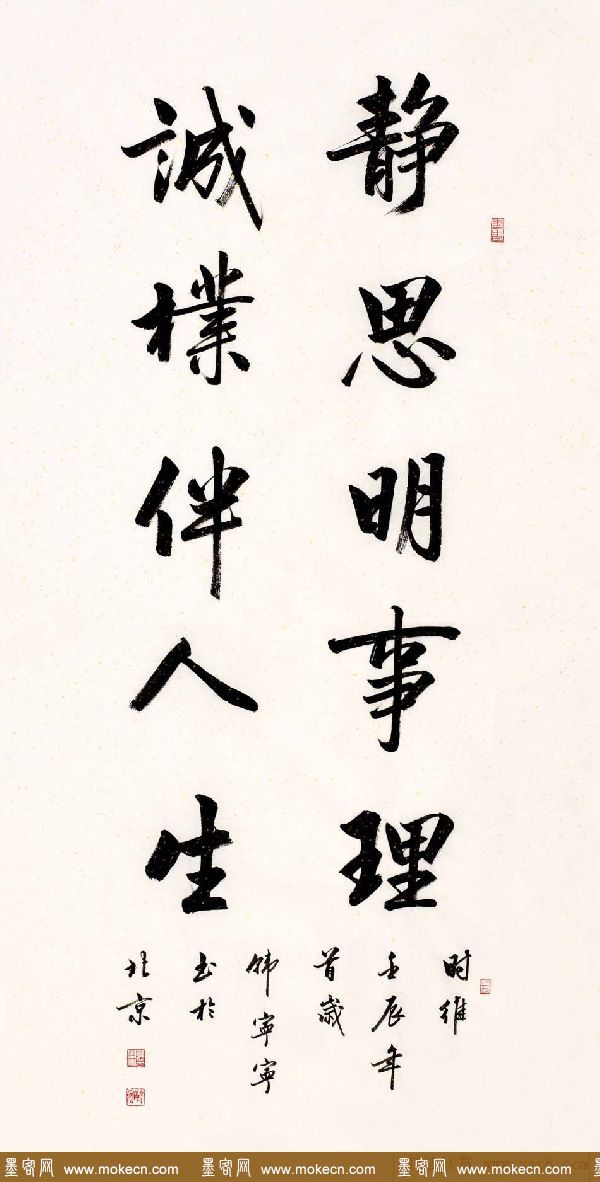 静思明事理
誠樸伴人生
时維
壬辰年
首歲
韩寧寧
书於
北京
墨客网 www.mokecn.com 墨客网 www.mokecn.com 墨客网 www.mokecn.com